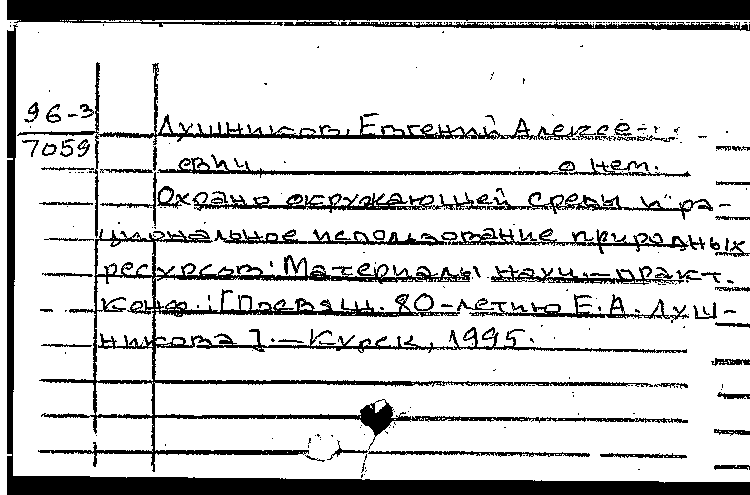 96-3
7059
Лушников, Евгений Алексе-
евич, о нем.
Охрана окружающей среды и ра-
циональное использование природных
ресурсов: Материалы науч.-практ.
конф.: [Посвящ. 80-летию Е.А. Луш-
никова]. — Курск, 1995.